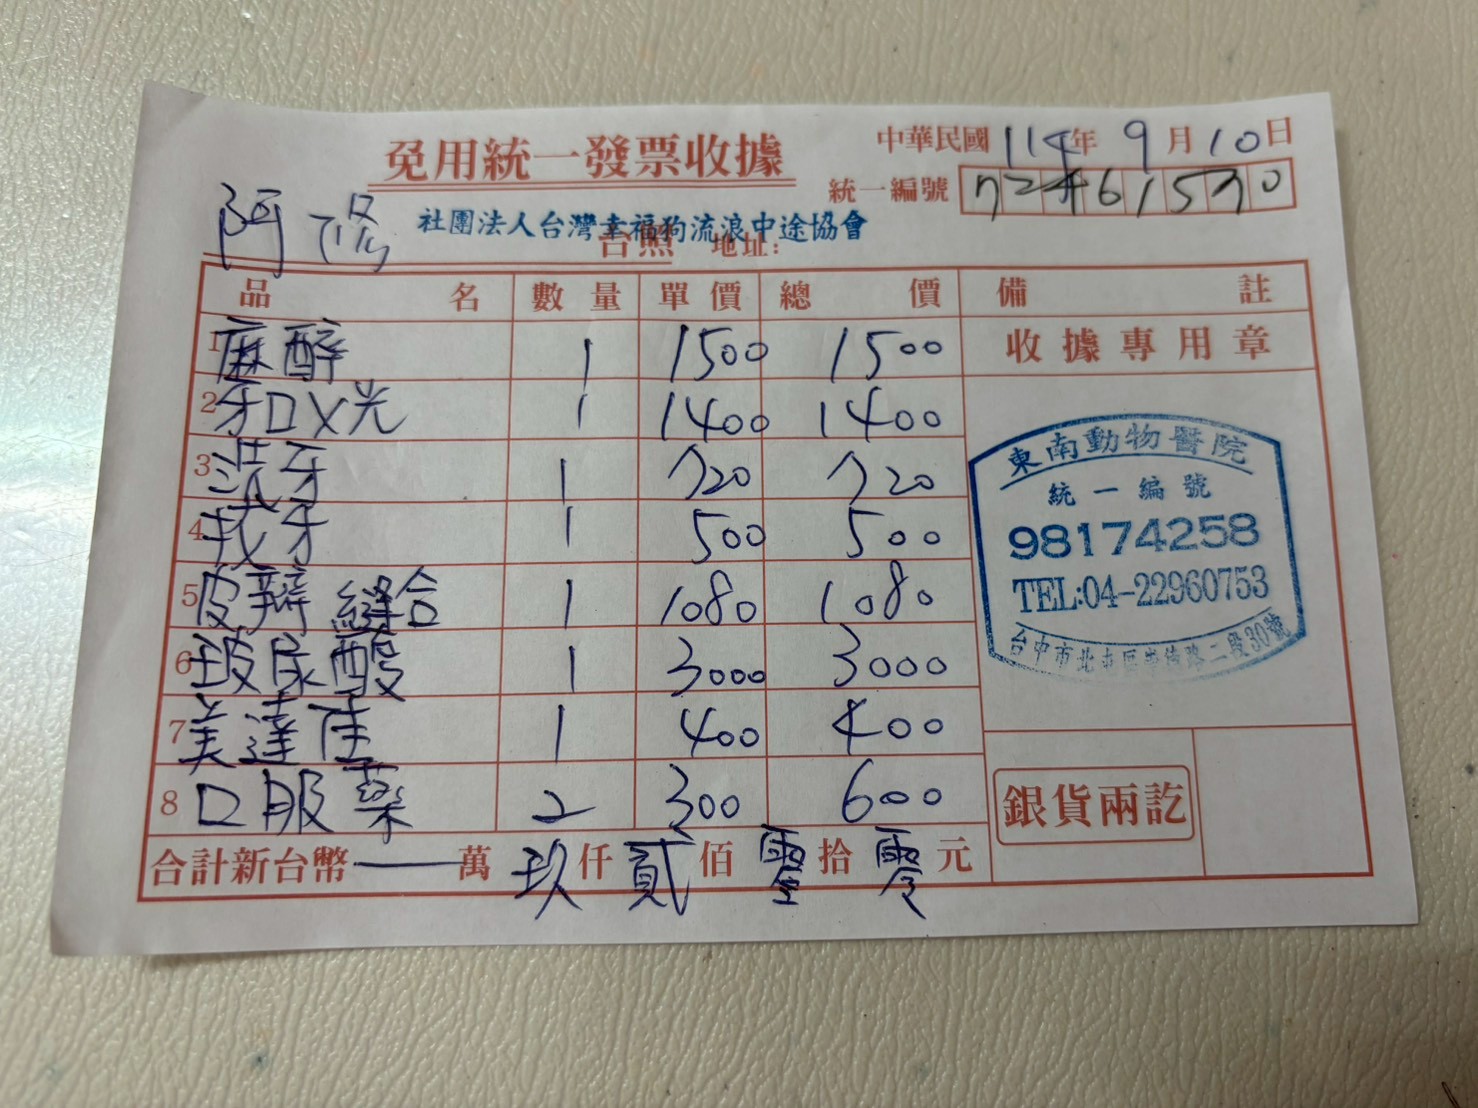 免用統一發票收據
中華民國114年9月10日
統一編號 72461570
阿福 社團法人台灣幸福狗流浪中途協會
台照 地址:
品名 數量 單價 總價 備註
1 麻醉 1 1500 1500
收據專用章
2 牙口X光 1 1400 1400
3 洗牙 1 720 720
4 拔牙 1 500 500
5 皮瓣縫合 1 1080 1080
6 玻尿酸 1 3000 3000
7 美達佳 1 400 400
8 口服藥 2 300 600
合計新台幣—萬玖仟貳佰零拾零元
東南動物醫院
統一編號
98174258
TEL:04-22960753
台中市北屯區崇德路二段30號
銀貨兩訖